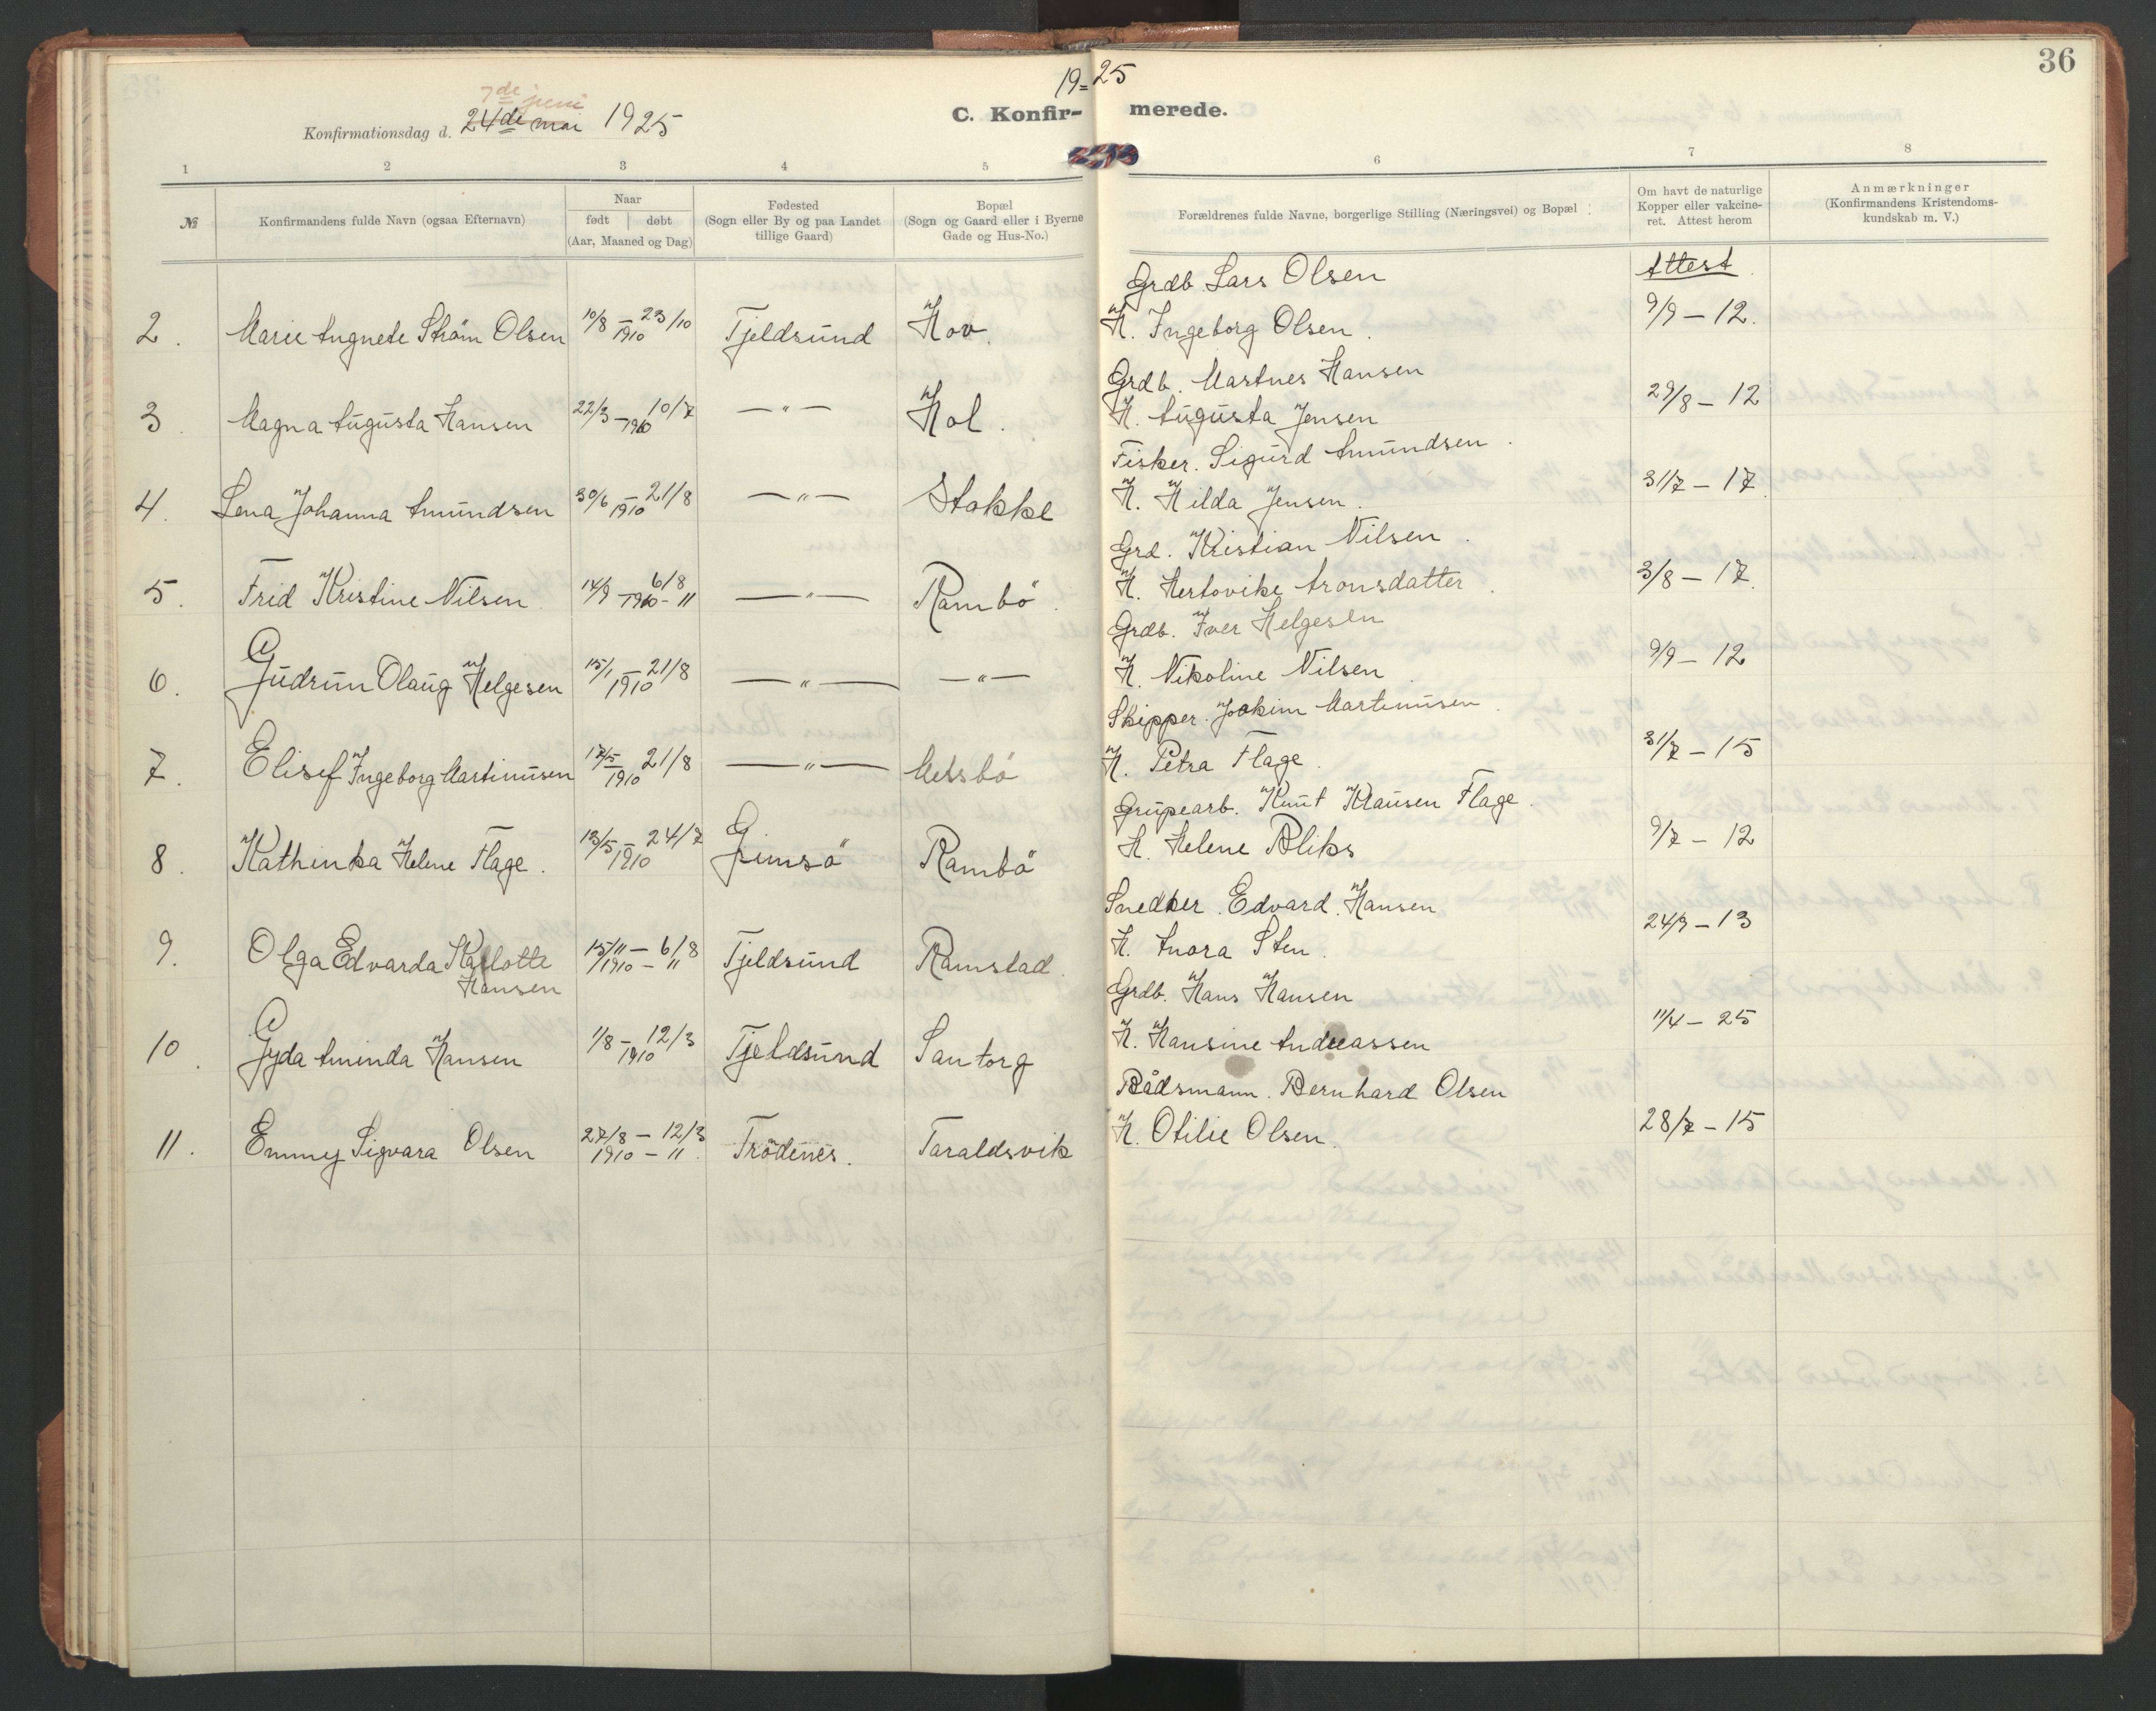 36
19-25
C. Konfirmerede.
7de juni
Konfirmationsdag d. 24de mai 1925
1 2 3 4 5 6 7 8
№
Konfirmandens fulde Navn (ogsaa Efternavn)
Naar
født | døbt
(Aar, Maaned og Dag)
Fødested
(Sogn eller By og paa Landet
tillige Gaard)
Bopæl
(Sogn og Gaard eller i Byerne
Gade og Hus-No.)
Forældrenes fulde Navne, borgerlige Stilling (Næringsvei) og Bopæl
Om havt de naturlige
Kopper eller vakcine-
ret. Attest herom
Anmærkninger
(Konfirmandens Kristendoms-
kundskab m. V.)
Attest
Grdb. Lars Olsen
2. Marie Angnete Strøm Olsen 10/8 – 23/10 1910 Tjeldsund Hov. H. Ingeborg Olsen. 9/9 – 12.
Grdb. Martnes Hansen
3. Magna Augusta Hansen 22/3 – 10/7 1910 — " — Hol. H. Augusta Jensen 29/8 – 12
Fisker. Sigurd Amundsen.
4. Lena Johanna Amundsen 30/6 – 21/8 1910 — " — Stokke H. Hilda Jensen. 31/7 – 17.
Grd. Kristian Nilsen.
5. Frid Kristine Nilsen. 14/9 – 6/8 1910 – 11 — " — Rambö. H. Hertovike Aronsdatter. 3/8 – 17.
Grdb. Iver Helgesen
6. Gudrun Olaug Helgesen 15/1 – 21/8 1910 — " — — " — H. Nikoline Nilsen. 9/9 – 12
Skipper. Joakim Martinusen.
7. Elisef Ingeborg Martinusen 17/5 – 21/8 1910 — " — Messbö H. Petra Flage. 31/7 – 15
Grupearb. Knut Klausen Flage.
8. Kathinka Helene Flage. 13/5 – 24/7 1910 Gimsö Rambö H. Helene Bliks 9/7 – 12
Snedker. Edvard. Hansen
9. Olga Edvarda Karlotte Hansen 15/11 – 6/8 1910 – 11 Tjeldsund Ramstad. H. Anora Sten. 24/9 – 13
Grdb. Hans Hansen
10. Gyda Aminda Hansen 1/8 – 12/3 1910 Tjeldsund Santorg H. Hansine Andreassen 11/4 – 25
Bådsmann. Bernhard Olsen
11. Emmy Sigvara Olsen 27/8 – 12/3 1910 – 11. Trödenes. Taraldsvik H. Otilie Olsen. 28/7 – 15